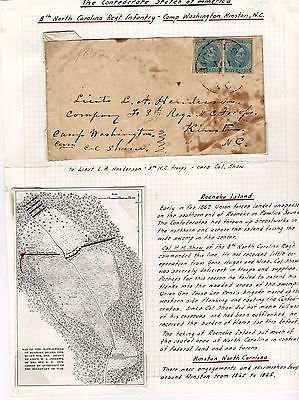 The Confederate States of America
8th North Carolina Regt Infantry - Camp Washington Kinston, N.C.
Lieut L. A. Henderson
Company F 8th Regt N.C. Troops
Camp Washington
Kinston
N.C.
care Col Shaw
To Lieut L. A. Henderson - 8th N.C. troops - care Col. Shaw
Roanoke Island
Early in Feb 1862 Union forces landed unopposed
on the southern end of Roanoke in Pamlico Sound
The Confederates had thrown up breastworks
in the northern end across the island facing the
wide swamp in the center.
Col H.M. Shaw of the 8th North Carolina Regt
commanded this line. He had received little co-
operation from Genls. Huger and Wise. Col. Shaw
was severely deficient in troops and supplies.
Perhaps for this reason he failed to extend his
flanks into the wooded areas of the swamps.
Union Gen. Jesse Reno's brigade moved up the
western side flanking and routing the Confed-
erates. Since Col Shaw did not make full use
of his reserves and had been outflanked, he
received the burden of blame for this defeat.
The taking of Roanoke Island put much
of the coastal area of North Carolina in control
of Federal land and sea forces.
Kinston, North Carolina
There were engagements and skirmishes fought
around Kinston from 1862 to 1865.
MAP OF THE BATTLEFIELD
OF ROANOKE ISLAND, FEB.